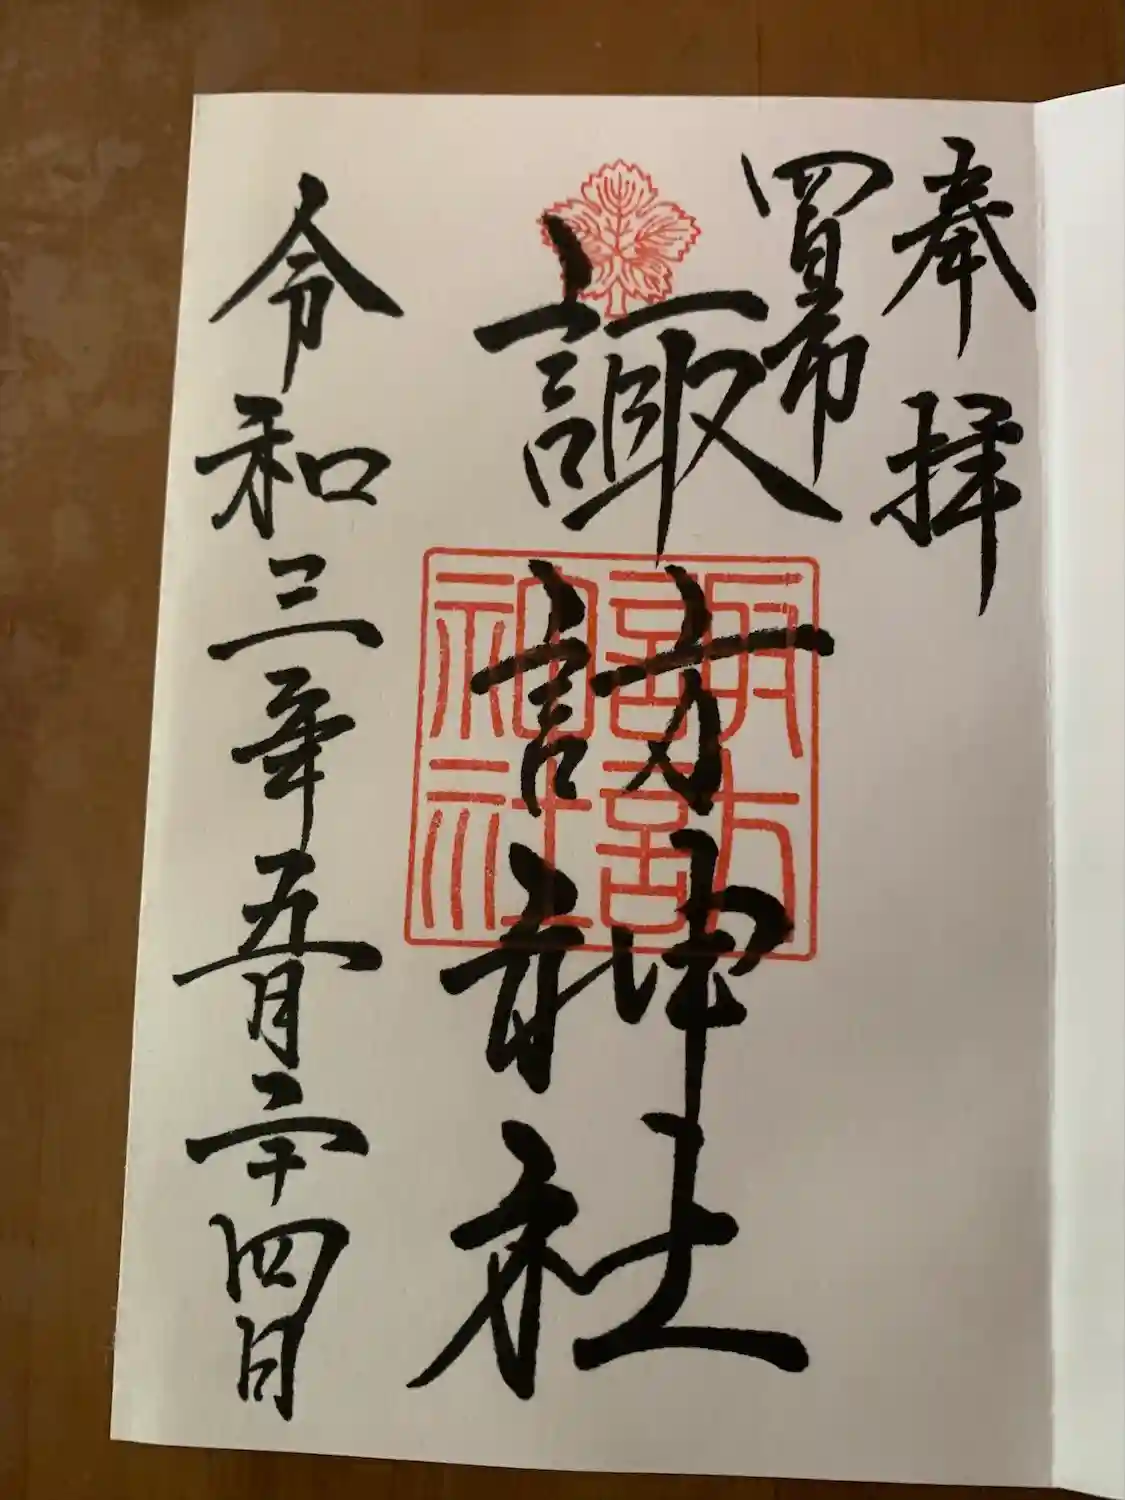 奉拝
四日市
諏訪神社
諏訪神社
令和三年五月二十四日